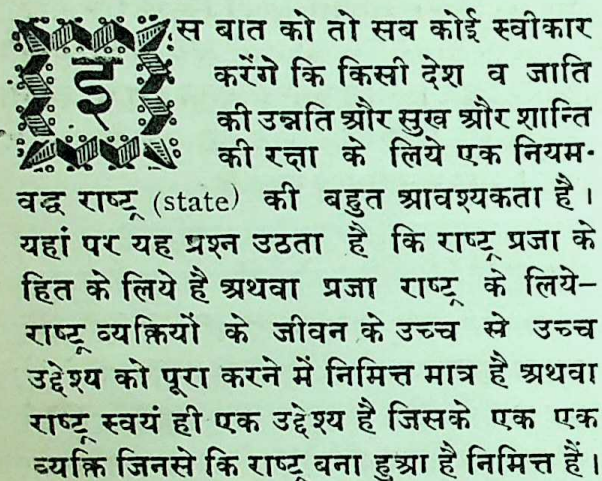 इस बात को तो सब कोई स्वीकार
करेंगे कि किसी देश व जाति
की उन्नति और सुख और शान्ति
की रक्षा के लिये एक नियम-
वद्ध राष्ट्र (state) की बहुत आवश्यकता है।
यहां पर यह प्रश्न उठता है कि राष्ट्र प्रजा के
हित के लिये है अथवा प्रजा राष्ट्र के लिये–
राष्ट्र व्यक्तियों के जीवन के उच्च से उच्च
उद्देश्य को पूरा करने में निमित्त मात्र है अथवा
राष्ट्र स्वयं ही एक उद्देश्य है जिसके एक एक
व्यक्ति जिनसे कि राष्ट्र बना हुआ है निमित्त हैं।